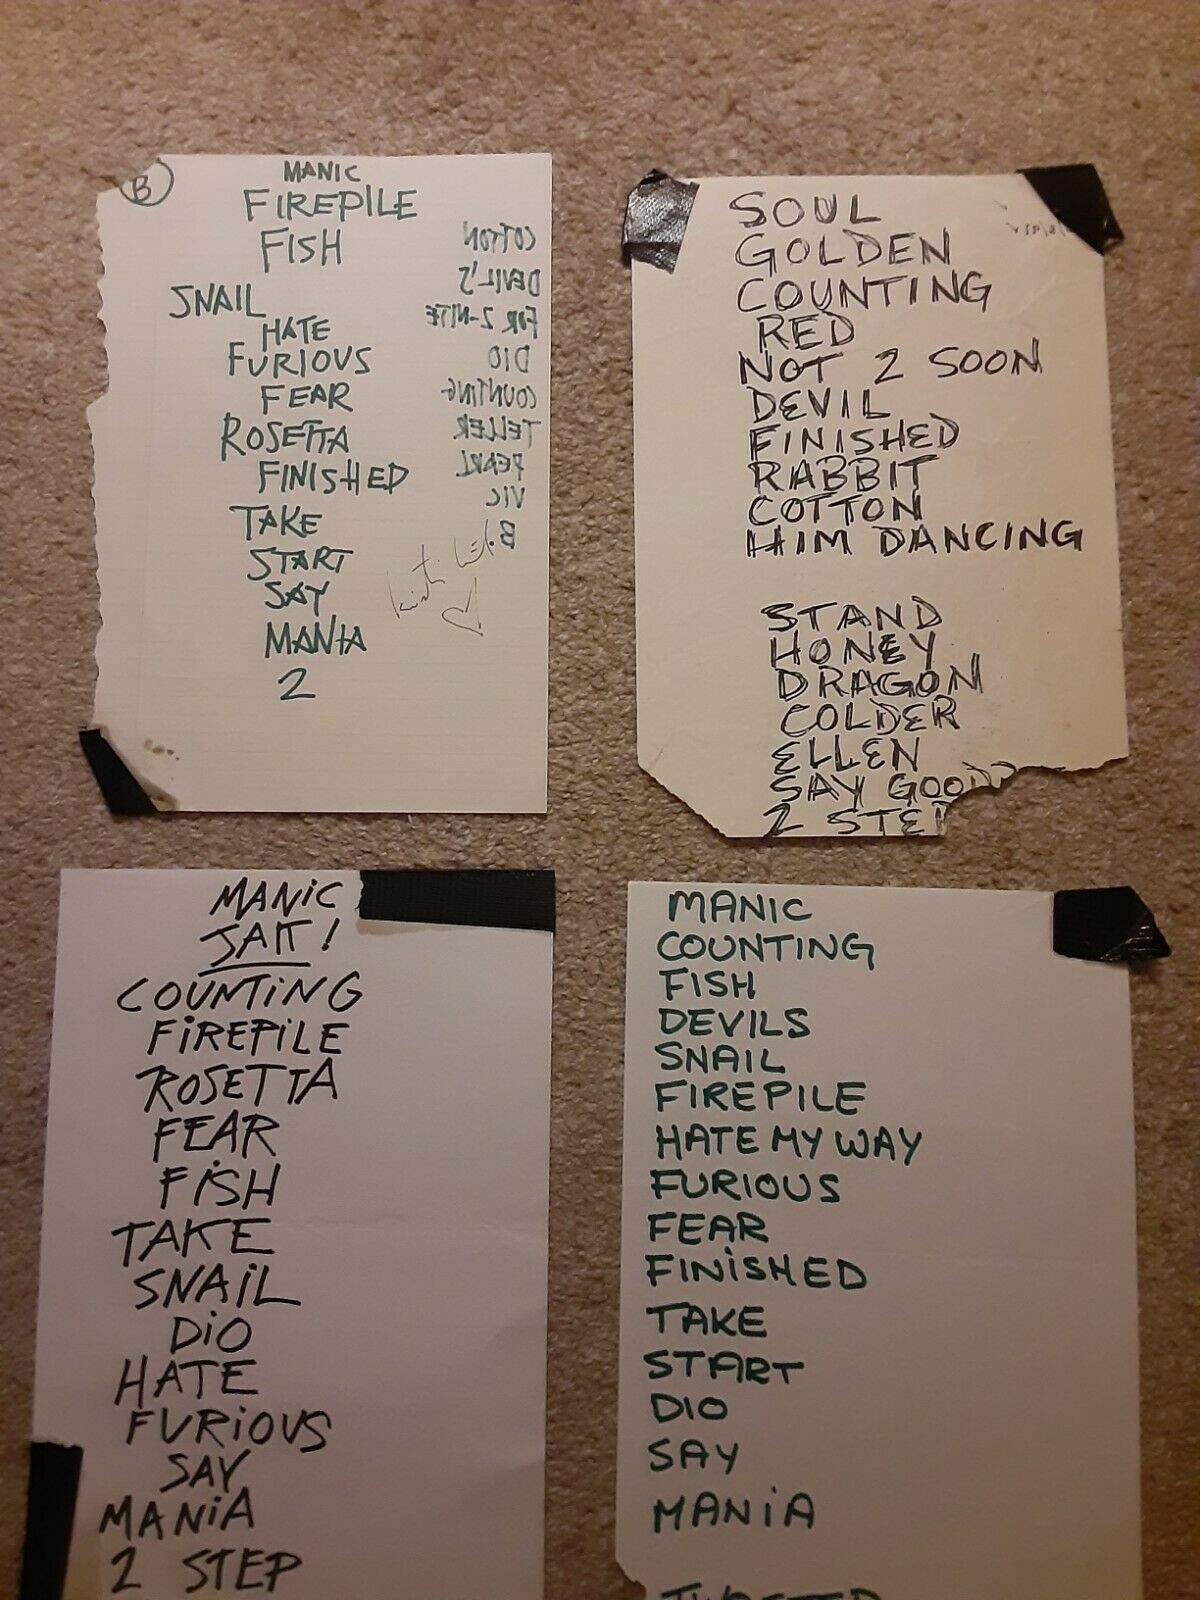 B
MANIC
FIREPILE
FISH
SNAIL
HATE
FURIOUS
FEAR
ROSETTA
FINISHED
TAKE
START
SAY
MANIA
2
COTTON
DEVIL'S
FOR 2-NITE
DIO
COUNTING
TELLER
PEARL
VIC
B.
SOUL
GOLDEN
COUNTING
RED
NOT 2 SOON
DEVIL
FINISHED
RABBIT
COTTON
HIM DANCING
STAND
HONEY
DRAGON
COLDER
ELLEN
SAY GOOD
2 STEP
MANIC
JAK!
COUNTiNG
FiREPiLE
ROSETTA
FEAR
FiSH
TAKE
SNAiL
DiO
HATE
FURiOUS
SAY
MANiA
2 STEP
MANIC
COUNTING
FISH
DEVILS
SNAIL
FIREPILE
HATE MY WAY
FURIOUS
FEAR
FINiSHED
TAKE
START
DIO
SAY
MANiA
TWISTED